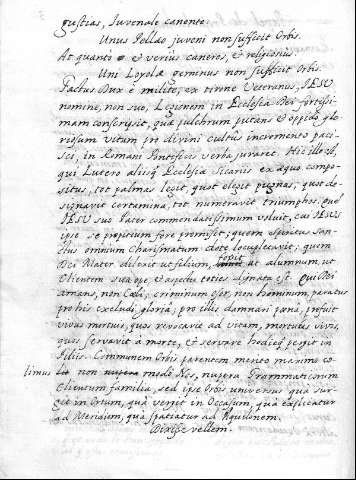 gustias, Juvenale canente:
Unus Pellæo juveni non sufficit Orbis.
At quanto et verius caneres, et religiosius.
Uni Loyolæ geminus non sufficit Orbis
Factus Dux è milite, ex tirone Veteranus, IESU
nomine, non suo, Legionem in Ecclesia Dei fortissi-
mam conscripsit, quæ pulchrum putans et oppidò glo-
riosum vitam pro divini cultus incremento pacis-
ci, in Romani Pontificis verba juraret. Hic ille est,
qui Lutero aliisq Ecclesiæ Sicariis ex æquo compo-
situs, tot palmas legit, quot elegit pugnas; quot de-
signavit certamina, tot numeravit triumphos. Quem
IESU suo Pater commendatissimum voluit, cui IESUS
ipse se propitium fore promisit; quem Spiritus San-
ctus omnium Charismatum dote locupletavit; quem
Dei Mater dilexit ut filium, fovit ut alumnum, ut
Clientem suâ ope, et aspectu toties dignata est. Qui Dei
amans, non Cæli; criminum osor, non hominum, paratus
pro his excludi gloria; pro illis damnari pœna, profuit
vivus mortuis, quos revocavit ad vitam, mortuus vivis,
quos servavit à morte, et servare hodieq pergit in
Filiis. Communem Orbis parentem merito maximo co-
limus non modò Nos, nupera Grammaticorum
Clientum familia, sed ipse Orbis universus quâ sur-
git in Ortum, quâ vergit in Occasum, quâ explicatur
ad Meridiem, quâ spatiatur ad Aquilonem.
Dixisse vellem.